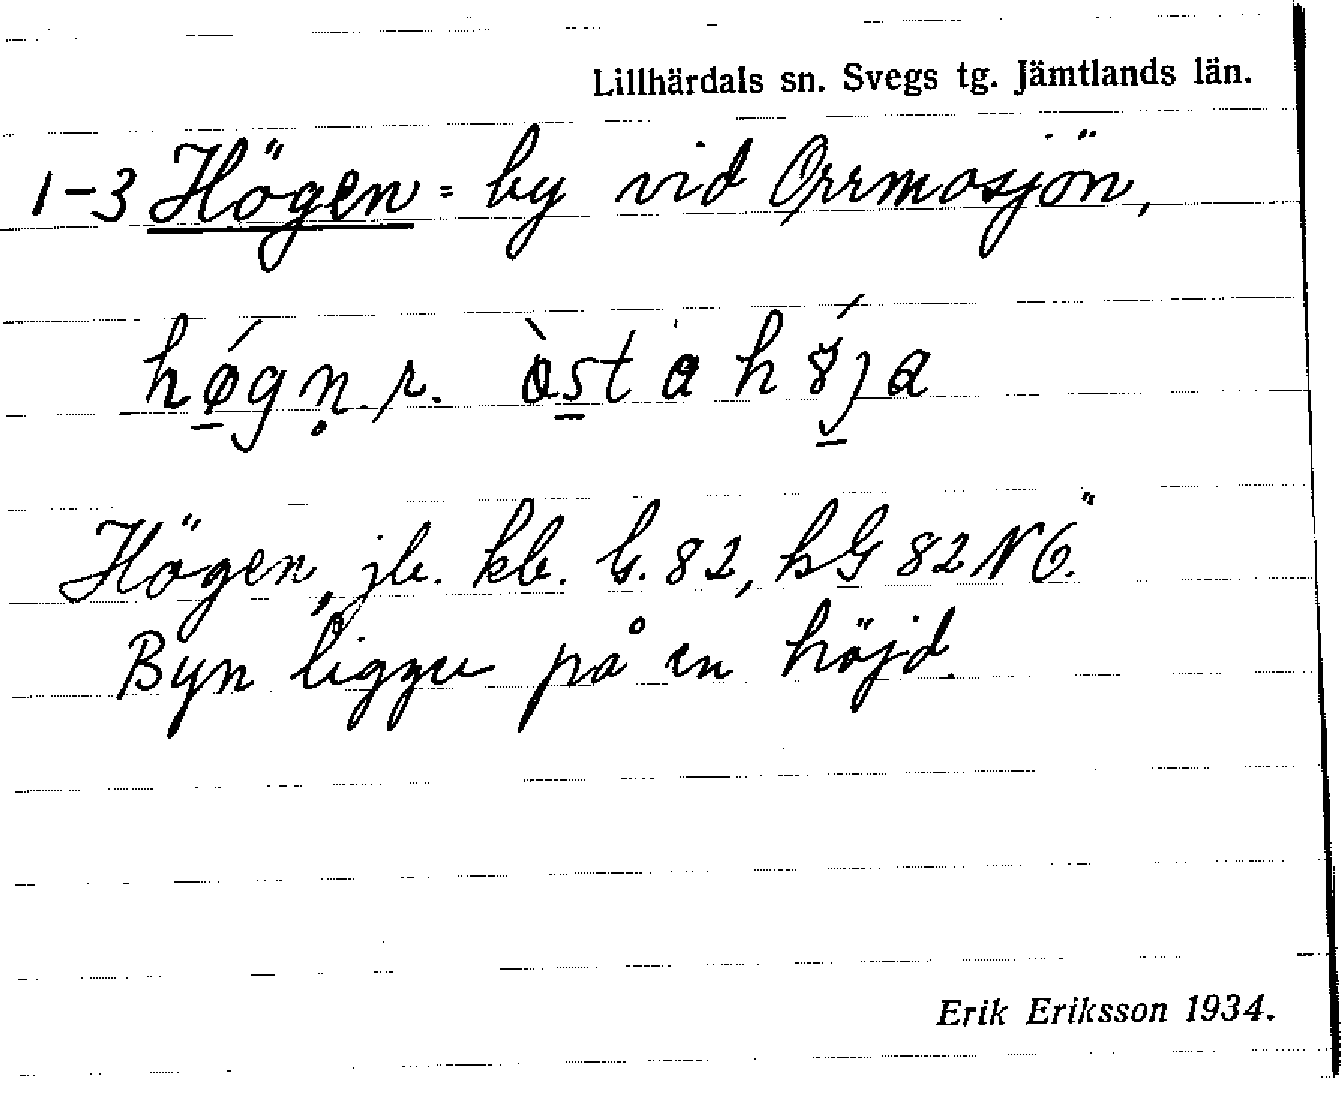 Lillhärdals sn. Svegs tg. Jämtlands län.
1-3 Högen = by vid Orrmosjön,
hǿ̱gn̥. r. òs̱ta
Högen, jb. kb. G. 82, hG 82 N 6."
Byn ligger på en höjd.
Erik Eriksson 1934.